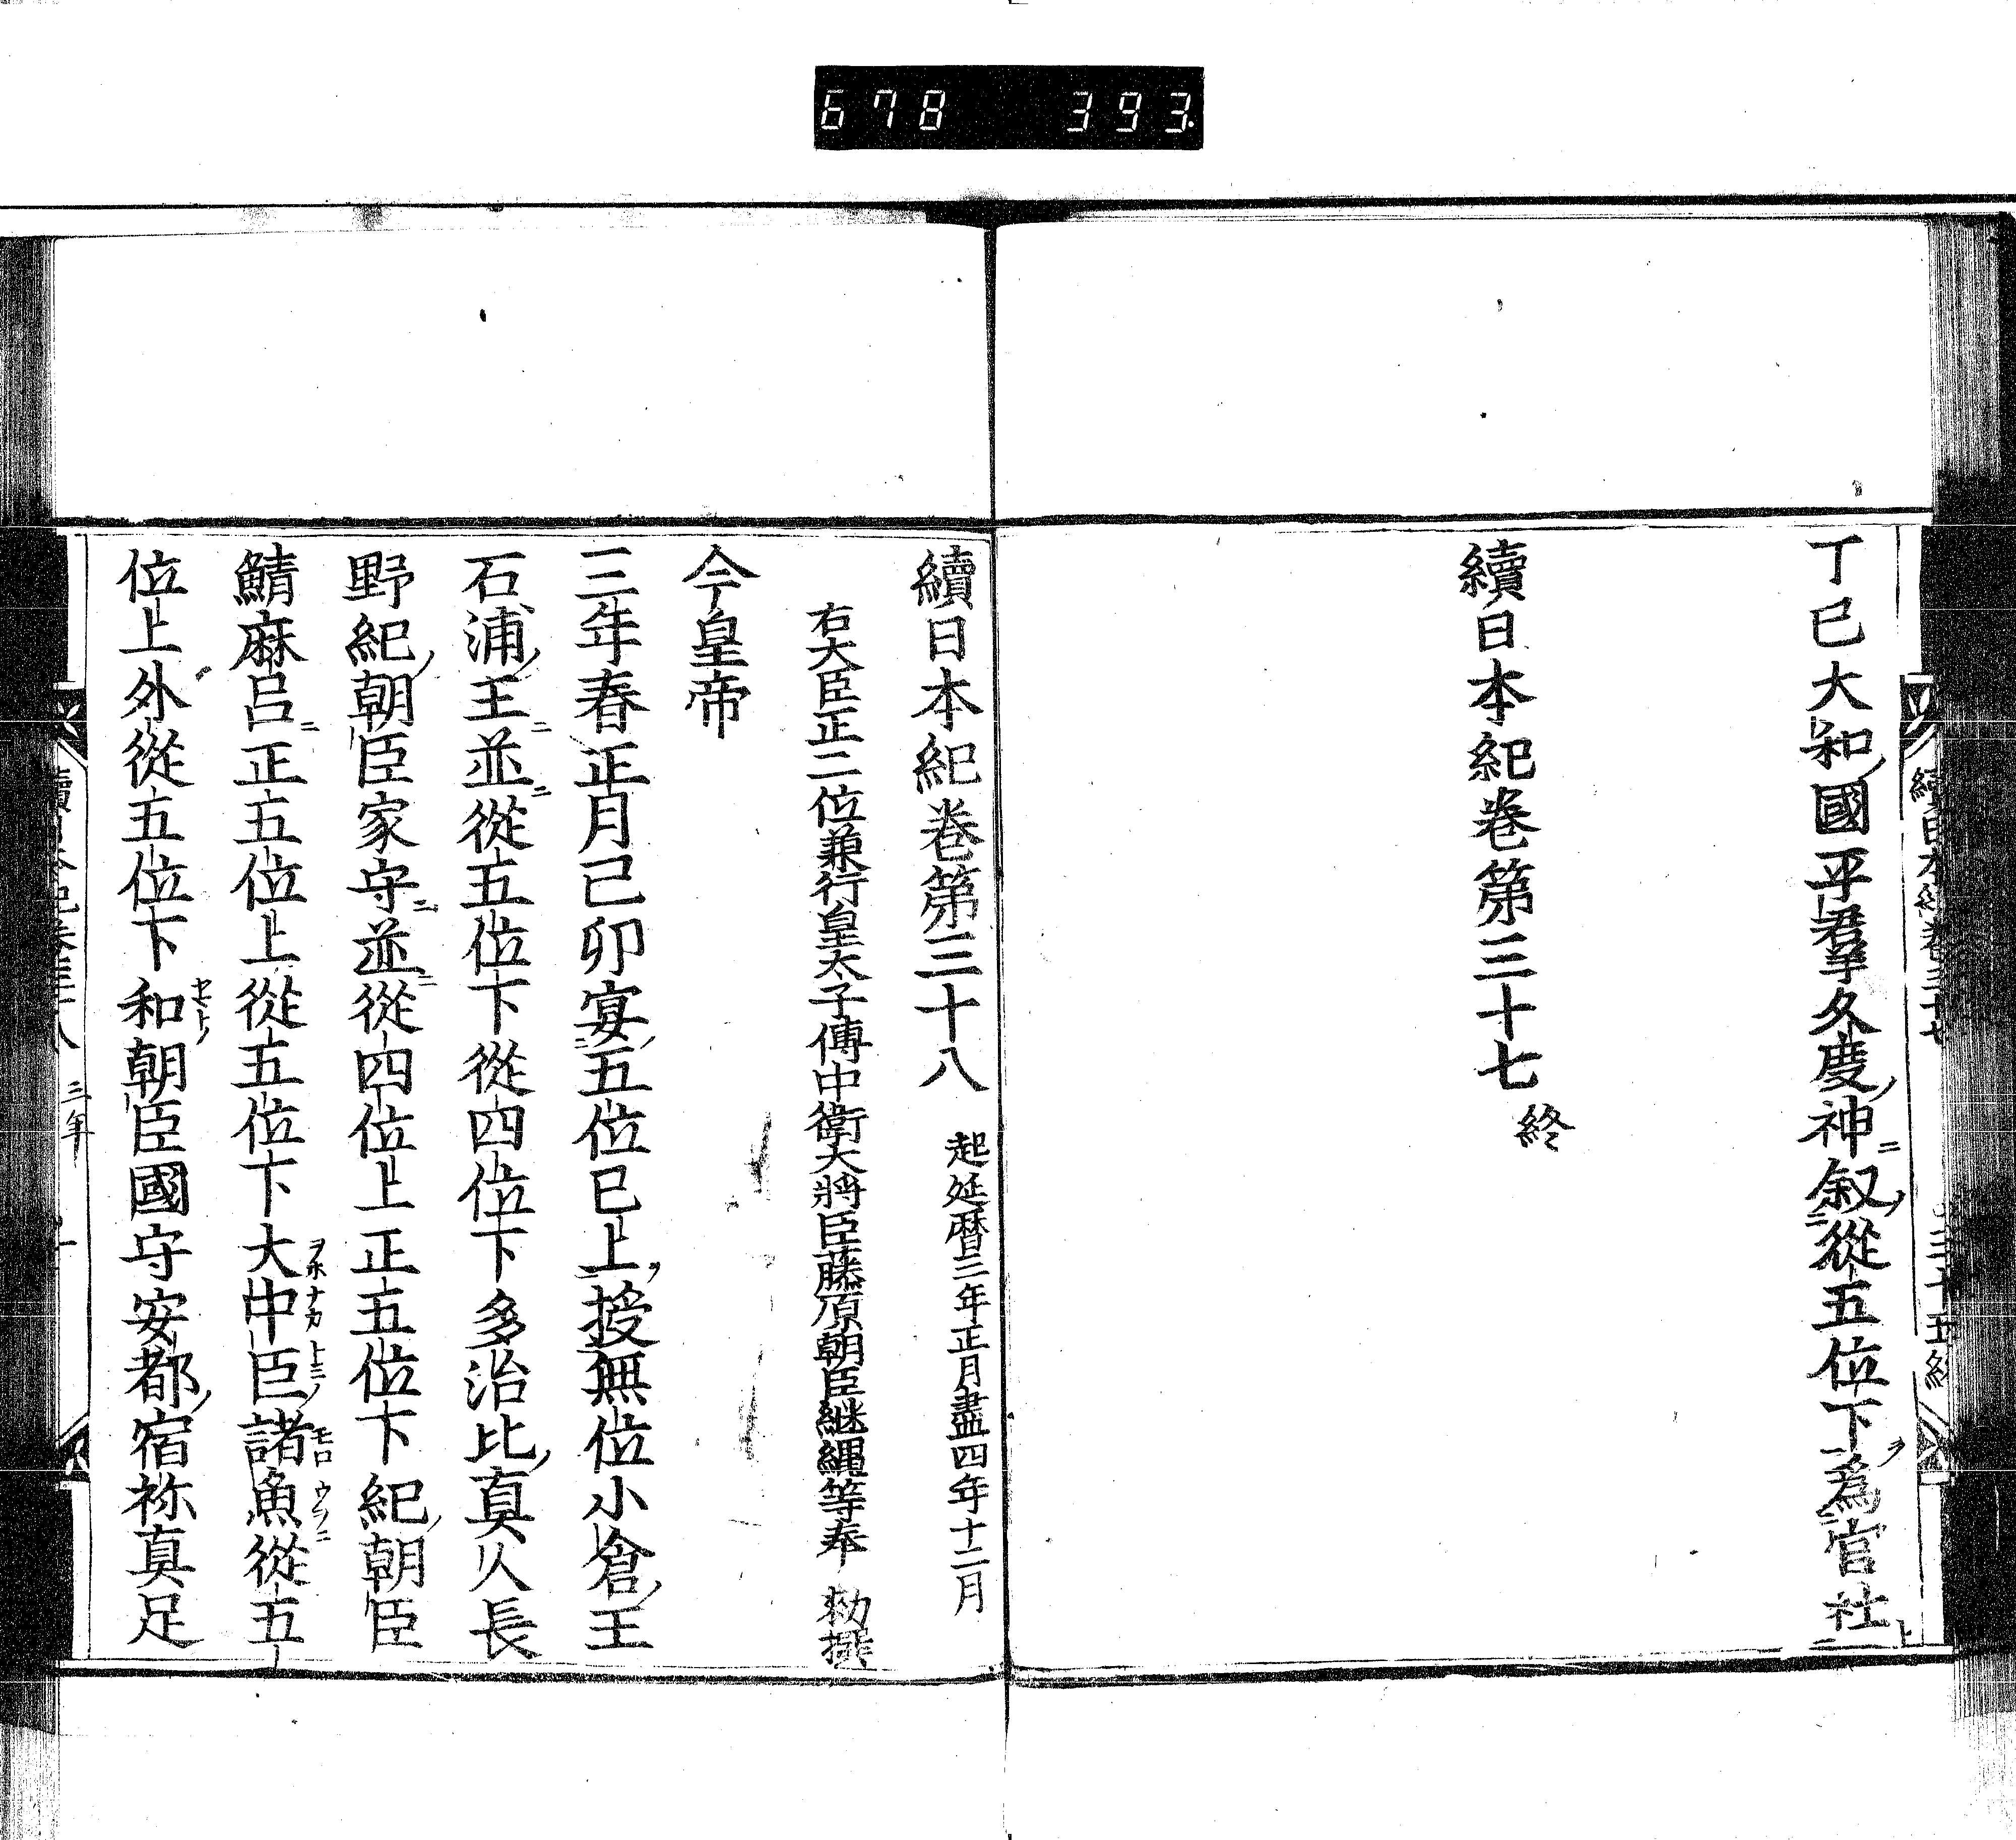 678 393
丁巳大和國平羣久度神叙從五位下爲官社
續日本紀卷第三十七 終
續日本紀卷第三十八 起延暦三年正月盡四年十二月
右大臣正二位兼行皇太子傅中衛大將臣藤原朝臣継縄等奉 勅撰
今皇帝
三年春正月己卯宴五位已上授無位小倉王
石浦王並從五位下從四位下多治比真人長
野紀朝臣家守並從四位上正五位下紀朝臣
鯖麻呂正五位上從五位下大中臣諸魚從五
位上外從五位下和朝臣國守安都宿祢真足
三年